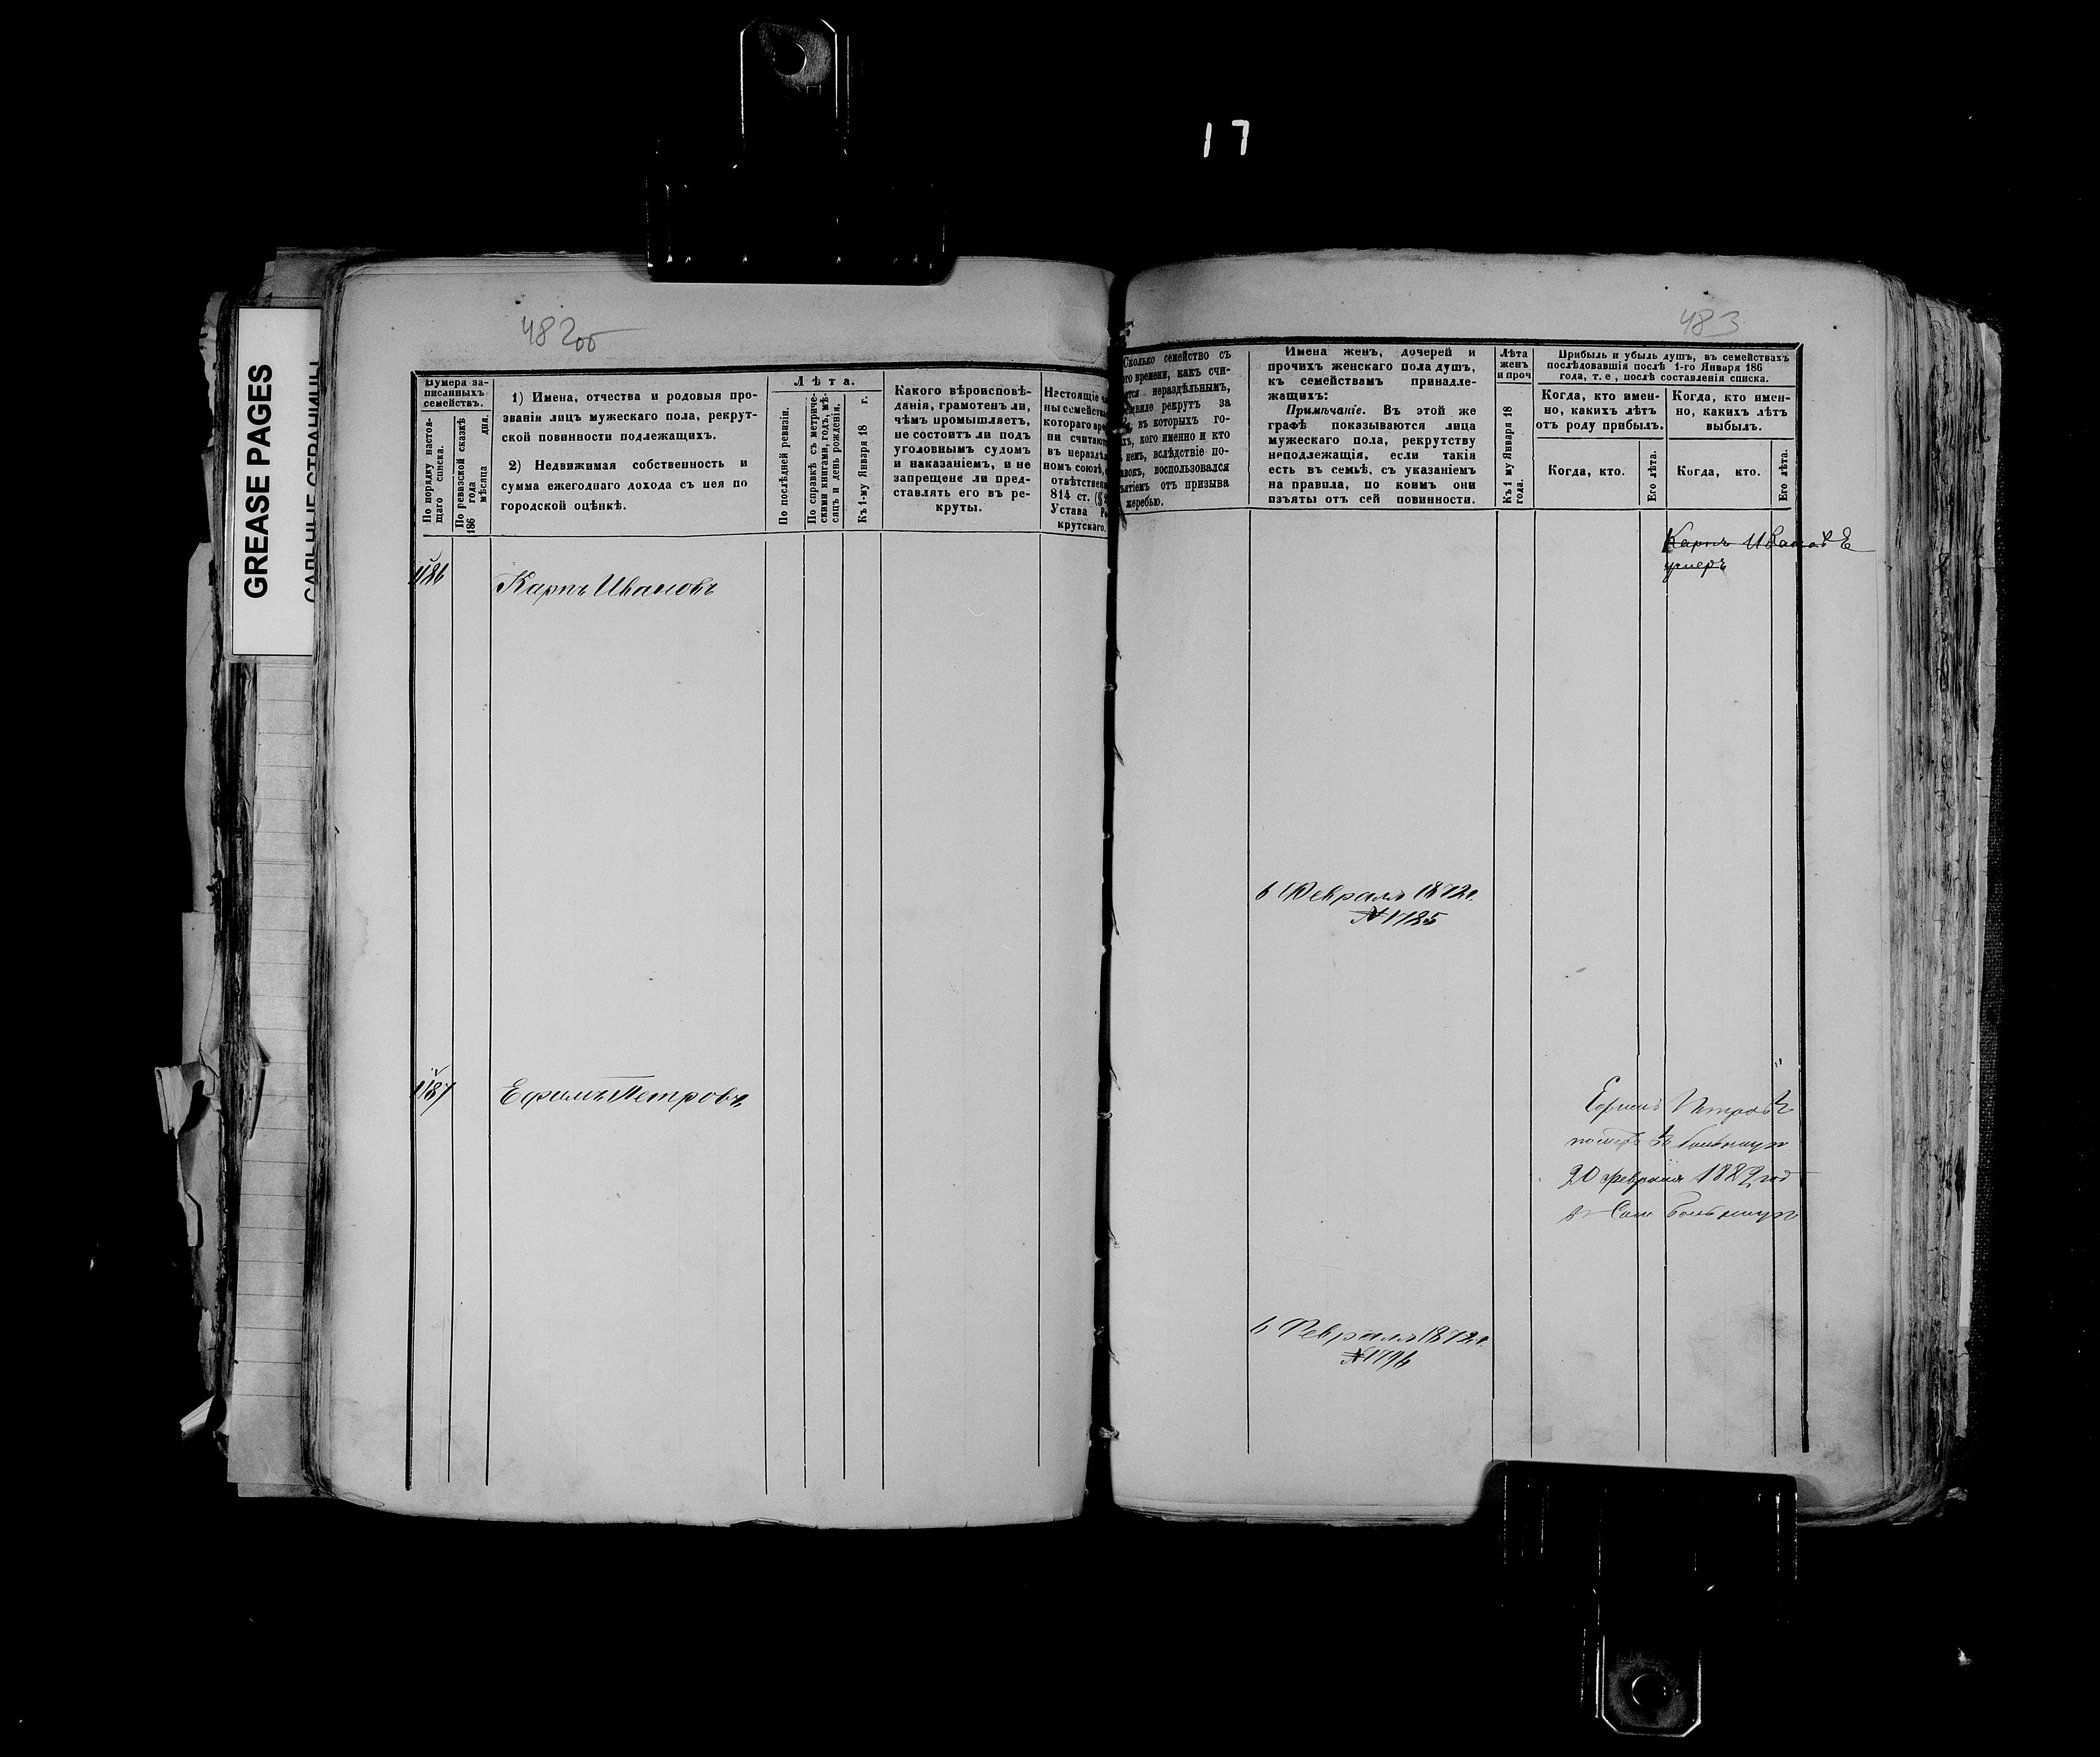 17
GREASE PAGES
482об
483
Нумера за-
писанныхъ
семействъ.
По порядку настоя-
щаго списка.
По ревизской сказкѣ
186 года мѣсяца дня.
1) Имена, отчества и родовыя про-
званія лицъ мужескаго пола, рекрут-
ской повинности подлежащихъ.
2) Недвижимая собственность и
сумма ежегоднаго дохода съ нея по
городской оцѣнкѣ.
Лѣта.
По послѣдней ревизіи.
По справкѣ съ метриче-
скими книгами, годъ, мѣ-
сяцъ и день рожденія.
Къ 1-му Января 18 г.
Какого вѣроисповѣ-
данія, грамотенъ ли,
чѣмъ промышляетъ,
не состоитъ ли подъ
уголовнымъ судомъ
и наказаніемъ, и не
запрещено ли пред-
ставлять его въ ре-
круты.
Настоящіе
ны семейства
котораго вре
ни считают
въ нераздѣл
номъ союзѣ,
отвѣтствен
814 ст.
Устава Ре
крутскаго.
Сколько семейство съ
того времени, какъ счи-
тается нераздѣльнымъ,
рекрутъ за
въ которыхъ го-
кого именно и кто
немъ, вслѣдствіе по-
воспользовался
отъ призыва
жеребью.
Имена женъ, дочерей и
прочихъ женскаго пола душъ,
къ семействамъ принадле-
жащихъ:
Примѣчаніе. Въ этой же
графѣ показываются лица
мужескаго пола, рекрутству
неподлежащія, если такія
есть въ семьѣ, съ указаніемъ
на правила, по коимъ они
изъяты отъ сей повинности.
Лѣта
женъ
и проч
Къ 1 му Января 18
года.
Прибыль и убыль душъ, въ семействахъ
послѣдовавшія послѣ 1-го Января 186
года, т. е., послѣ составленія списка.
Когда, кто имен-
но, какихъ лѣтъ
отъ роду прибылъ.
Когда, кто имен-
но, какихъ лѣтъ
выбылъ.
Когда, кто.
Его лѣта.
Когда, кто.
Его лѣта.
1186
Карпъ Ивановъ
Карпъ Иванов
умеръ
6 Февраля 1872г.
№1785
1187
Ефимъ Петровъ
Ефимъ Петров
20 февраля 1882 год
6 Февраля 1872г.
№1796